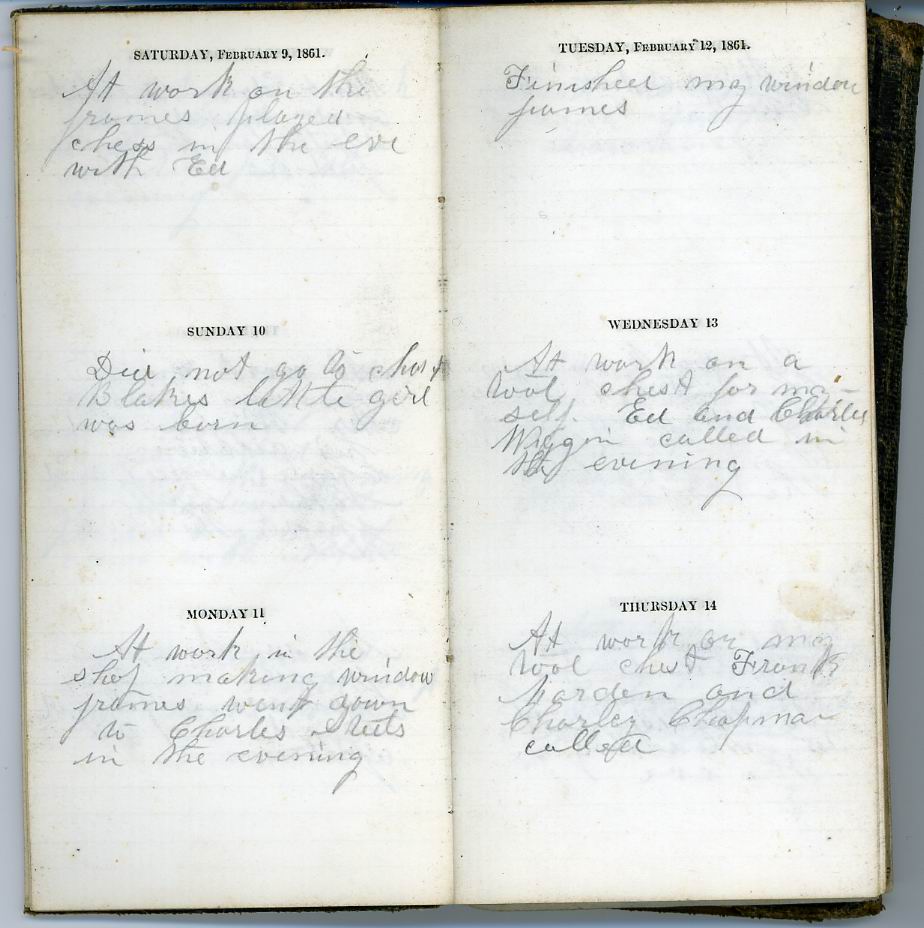 SATURDAY, FEBRUARY 9, 1861.
At work on the
frames played
chess in the eve
with Ed
SUNDAY 10
Did not go to
Blakes little girl
was born
MONDAY 11
At work in the
shop making window
frames went down
to Charles
in the evening
TUESDAY, FEBRUARY 12, 1861.
Finished my window
frames
WEDNESDAY 13
At work on a
tool chest for my-
self. Ed and Charles
Wiggin called in
the evening
THURSDAY 14
At work on my
tool chest Frank
Marden and
Charley Chapman
called